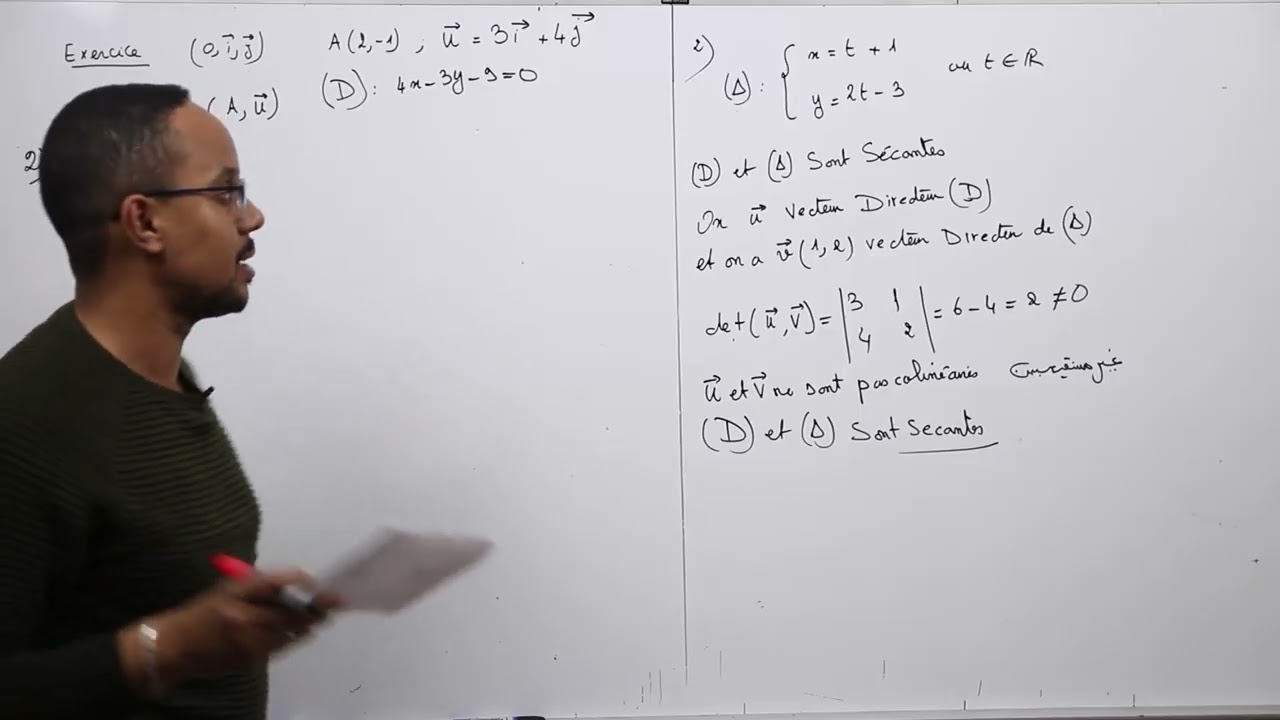 Exercice (0,i⃗,j⃗) A(2,-1) , u⃗ = 3i⃗ + 4j⃗
(A,u⃗) (D): 4x-3y-9=0
2)
2) (Δ): { x = t + 1
y = 2t - 3 où t ∈ ℝ
(D) et (Δ) Sont Sécantes
On u⃗ vecteur Directeur (D)
et on a v⃗(1,2) vecteur Directeur de (Δ)
det(u⃗,v⃗) = |3 1
4 2| = 6-4 = 2 ≠ 0
u⃗ et v⃗ ne sont pas colinéaires غير مستقيميتين
(D) et (Δ) Sont Secantes